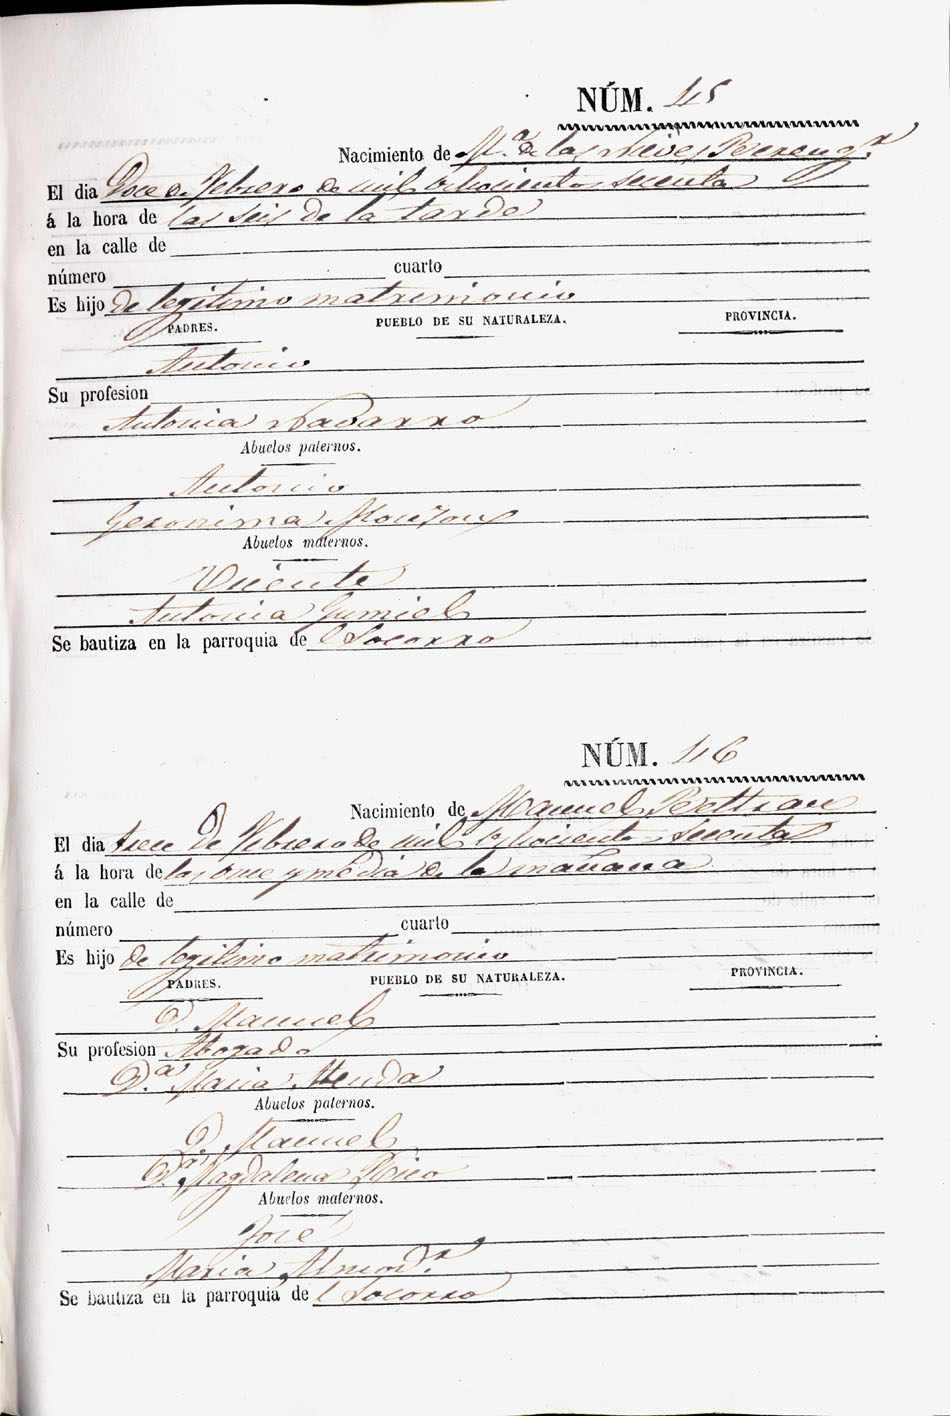 NÚM. 45
Nacimiento de M.ª de las Nieves Berengr
El dia Doce de Febrero de mil ochocientos secenta
á la hora de las seis de la tarde
en la calle de
número cuarto
Es hijo de legitimo matrimonio
PADRES. PUEBLO DE SU NATURALEZA. PROVINCIA.
Antonio
Su profesion
Antonia Navarro
Abuelos paternos.
Antonio
Geronima Monzon
Abuelos maternos.
Vicente
Antonia Gumiel
Se bautiza en la parroquia de l Socorro
NÚM. 46
Nacimiento de Manuel Beltran
El dia trece de Febrero de mil ochocientos secenta
á la hora de las once y media de la mañana
en la calle de
número cuarto
Es hijo de legitimo matrimonio
PADRES. PUEBLO DE SU NATURALEZA. PROVINCIA.
D. Manuel
Su profesion Abogado
D.ª Maria
Abuelos paternos.
D. Manuel
D.ª Magdalena Rico
Abuelos maternos.
José
Maria
Se bautiza en la parroquia de l Socorro